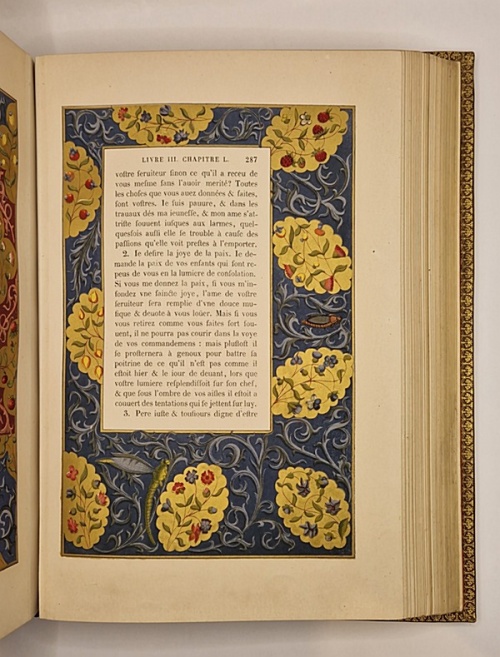 LIVRE III. CHAPITRE L. 287
voſtre ſeruiteur ſinon ce qu'il a receu de
vous meſme ſans l'auoir merité? Toutes
les choſes que vous auez données & faites,
ſont voſtres. Ie ſuis pauure, & dans les
trauaux dés ma ieuneſſe, & mon ame s'at-
triſte ſouuent iuſques aux larmes, quel-
quesfois auſſi elle ſe trouble à cauſe des
paſſions qu'elle voit preſtes à l'emporter.
2. Ie deſire la joye de la paix. Ie de-
mande la paix de vos enfants qui ſont re-
peus de vous en la lumiere de conſolation.
Si vous me donnez la paix, ſi vous m'in-
fondez vne ſaincte joye, l'ame de voſtre
ſeruiteur ſera remplie d'vne douce mu-
ſique & deuote à vous loüer. Mais ſi vous
vous retirez comme vous faites fort ſou-
uent, il ne pourra pas courir dans la voye
de vos commandemens : mais pluſtoſt il
ſe proſternera à genoux pour battre ſa
poitrine de ce qu'il n'eſt pas comme il
eſtoit hier & le iour de deuant, lors que
voſtre lumiere reſplendiſſoit ſur ſon chef,
& que ſous l'ombre de vos ailles il eſtoit a
couuert des tentations qui ſe jettent ſur luy.
3. Pere iuſte & touſiours digne d'eſtre